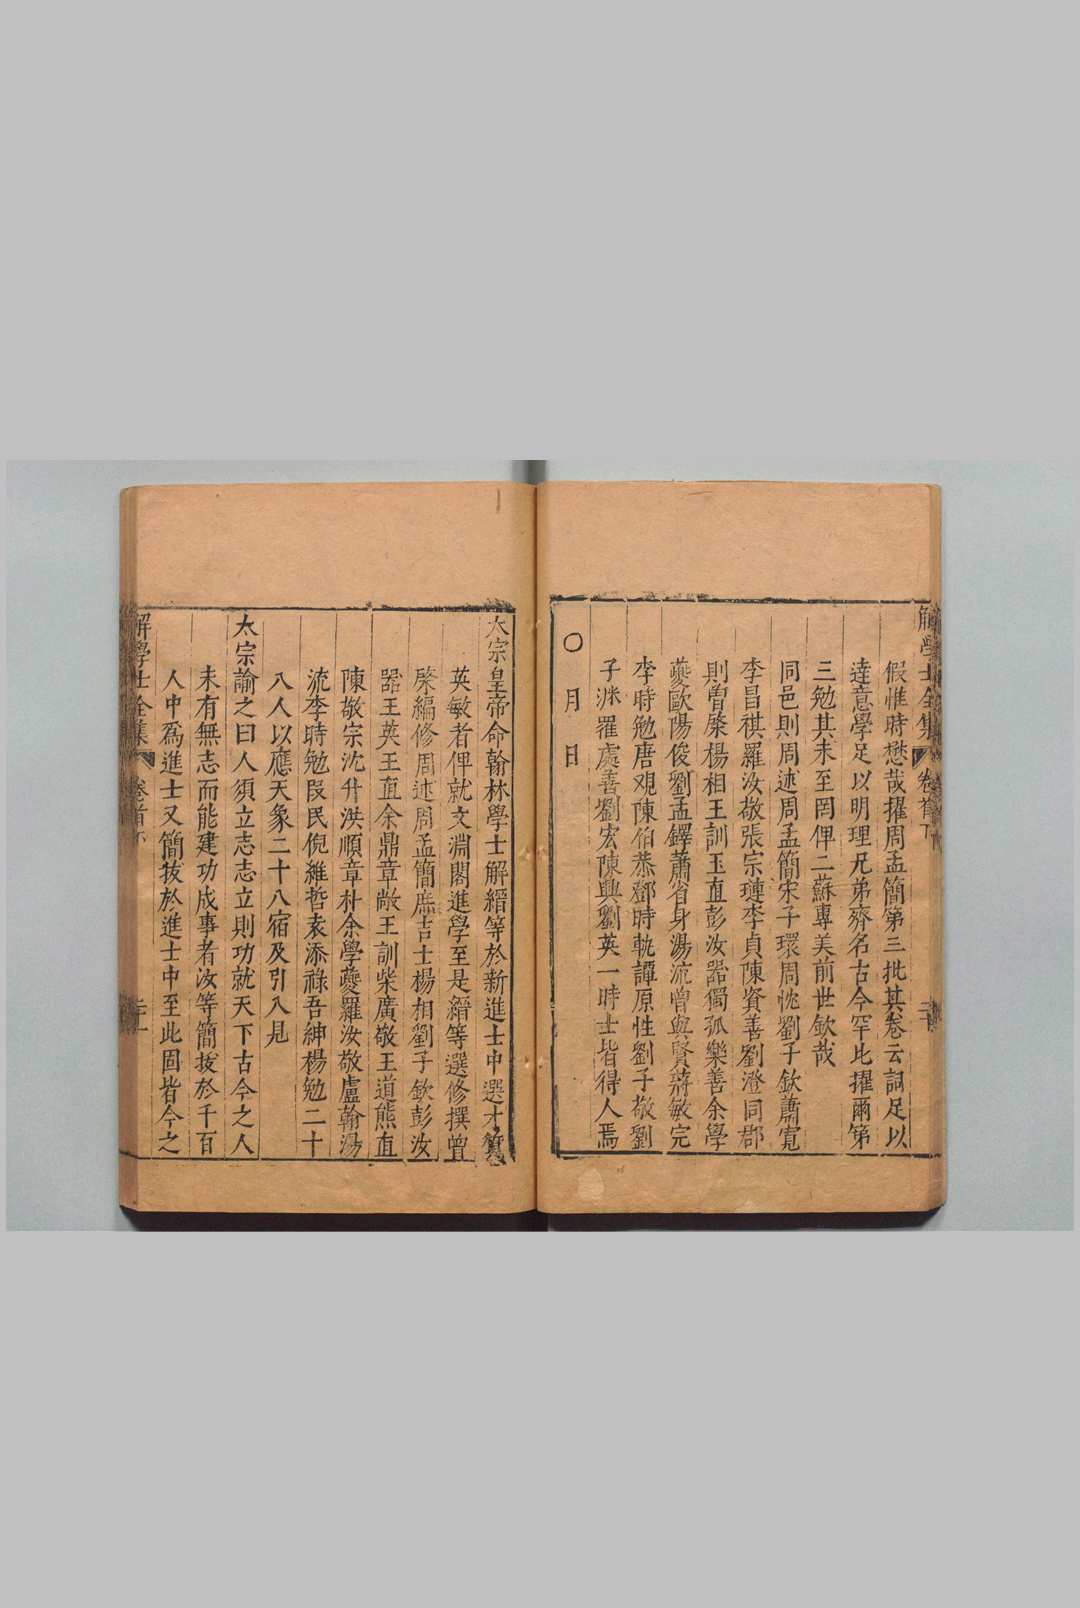 解學士全集 卷首下 二十
假惟時懋哉擢周孟簡第三批其卷云詞足以
達意學足以明理兄弟齊名古今罕比擢爾第
三勉其未至罔俾二蘇專美前世欽哉
同邑則周述周孟簡宋子環周忱劉子欽蕭寬
李昌祺羅汝敬張宗璉李貞陳資善劉澄同郡
則曾棨楊相王訓王直彭汝器獨孤樂善余學
夔歐陽俊劉孟鐸蕭省身湯流曾與賢蔣敏完
李時勉唐观陳伯恭鄧時軌譚原性劉子敬劉
子洣羅處善劉宏陳興劉英一時士皆得人焉
○月日
太宗皇帝命翰林學士解縉等於新進士中選才質
英敏者俾就文淵閣進學至是縉等選修撰曾
棨編修周述周孟簡庶吉士楊相劉子欽彭汝
器王英王直余鼎章敞王訓柴廣敬王道熊直
陳敬宗沈升洪順章朴余學夔羅汝敬盧翰湯
流李時勉段民倪維哲袁添祿吾紳楊勉二十
八人以應天象二十八宿及引入見
太宗諭之曰人須立志志立則功就天下古今之人
未有無志而能建功成事者汝等簡拔於千百
人中爲進士又簡拔於進士中至此固皆今之
解學士全集 卷首下 二十一